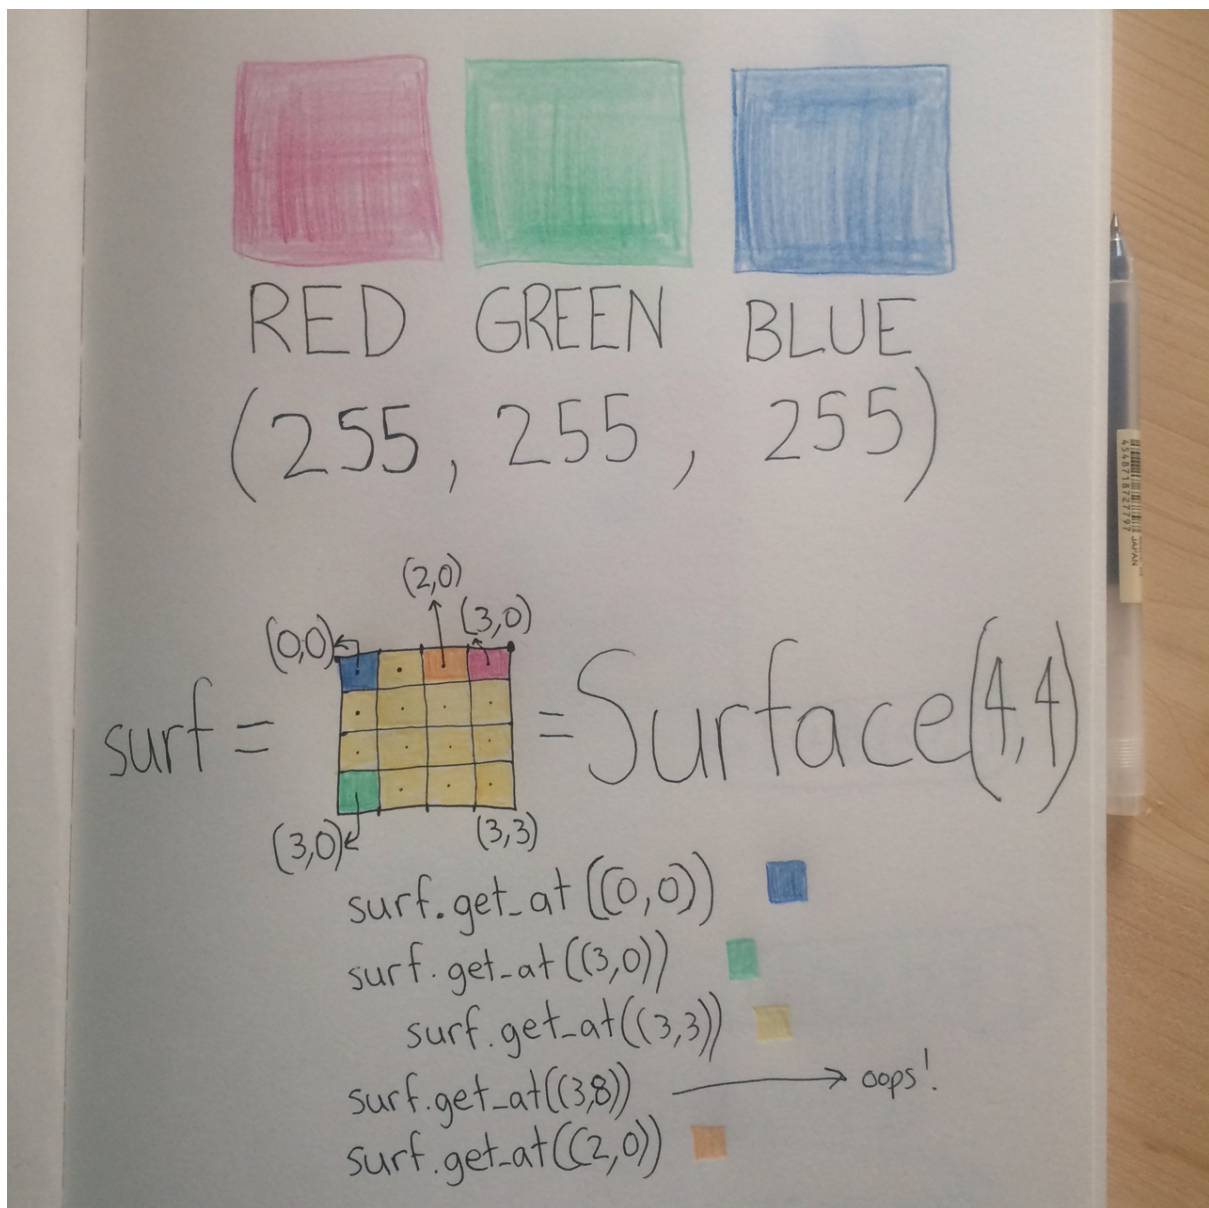 RED GREEN BLUE
(255, 255, 255)
(2,0)
(0,0) (3,0)
surf = = Surface(4,4)
(3,0) (3,3)
surf.get_at((0,0))
surf.get_at((3,0))
surf.get_at((3,3))
surf.get_at((3,8)) → oops!
surf.get_at((2,0))
JAPAN